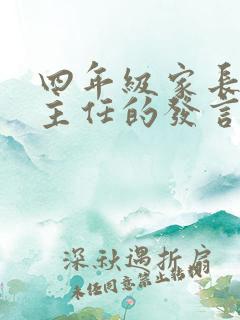 四年級家長
主任的發言
深秋遇折扇
未任同意禁止转载